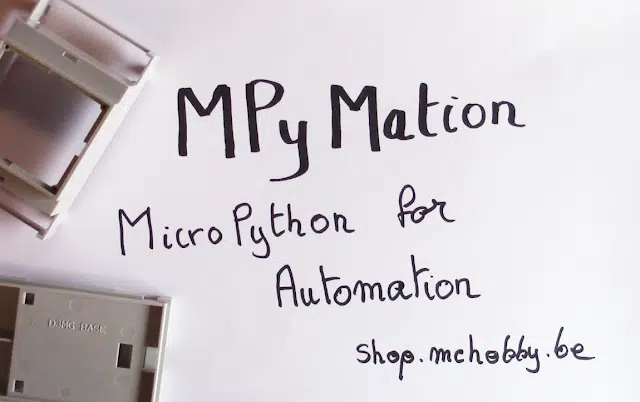 MPyMation
MicroPython for
Automation
shop.mchobby.be
D3MG-BASE